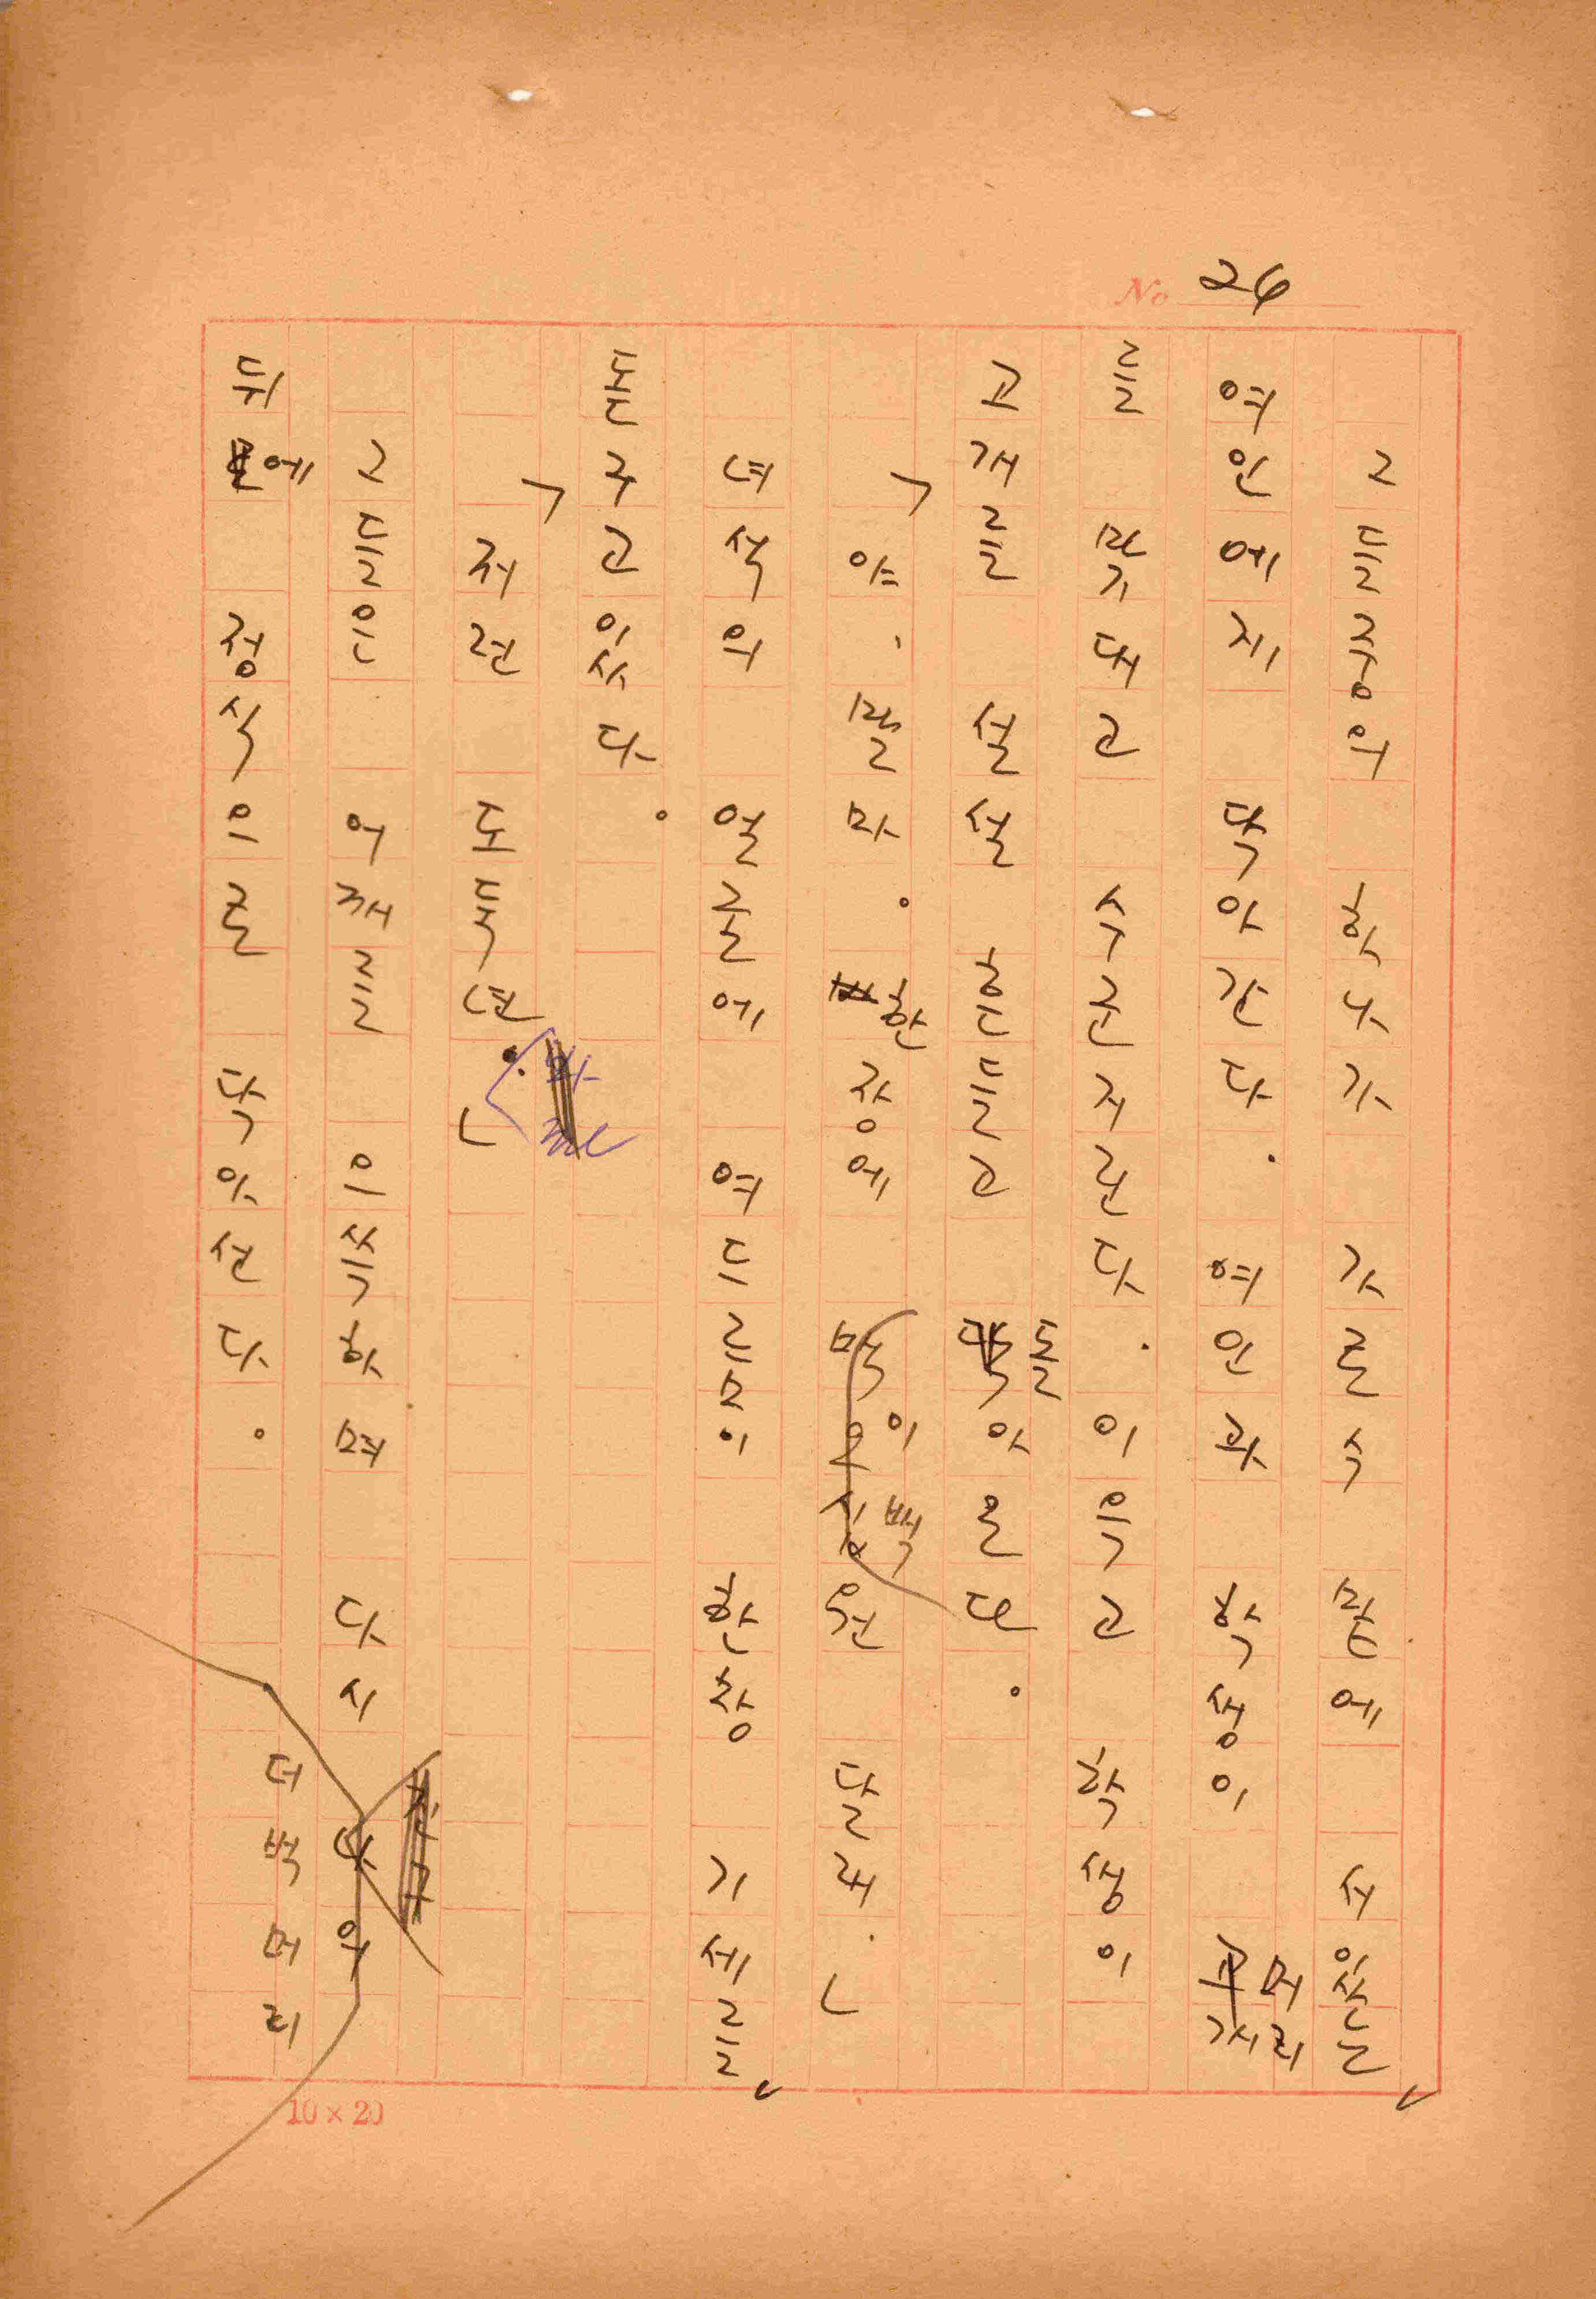 No 26
그들중의 하나가 가로수 밑에 서있는
여인에게 닥아간다. 여인과 학생이 머리
를 맞대고 수군거린다. 이윽고 학생이
고개를 설설 흔들고 돌아온다.
「야, 말마. 한장에 이백원 달래.」
녀석의 얼굴에 여드름이 한창 기세를
돋구고있다.
「저런 도둑년.」
그들은 어깨를 으쓱하며 다시 나의
뒤에 정식으로 닥아선다.
더벅머리
10×20